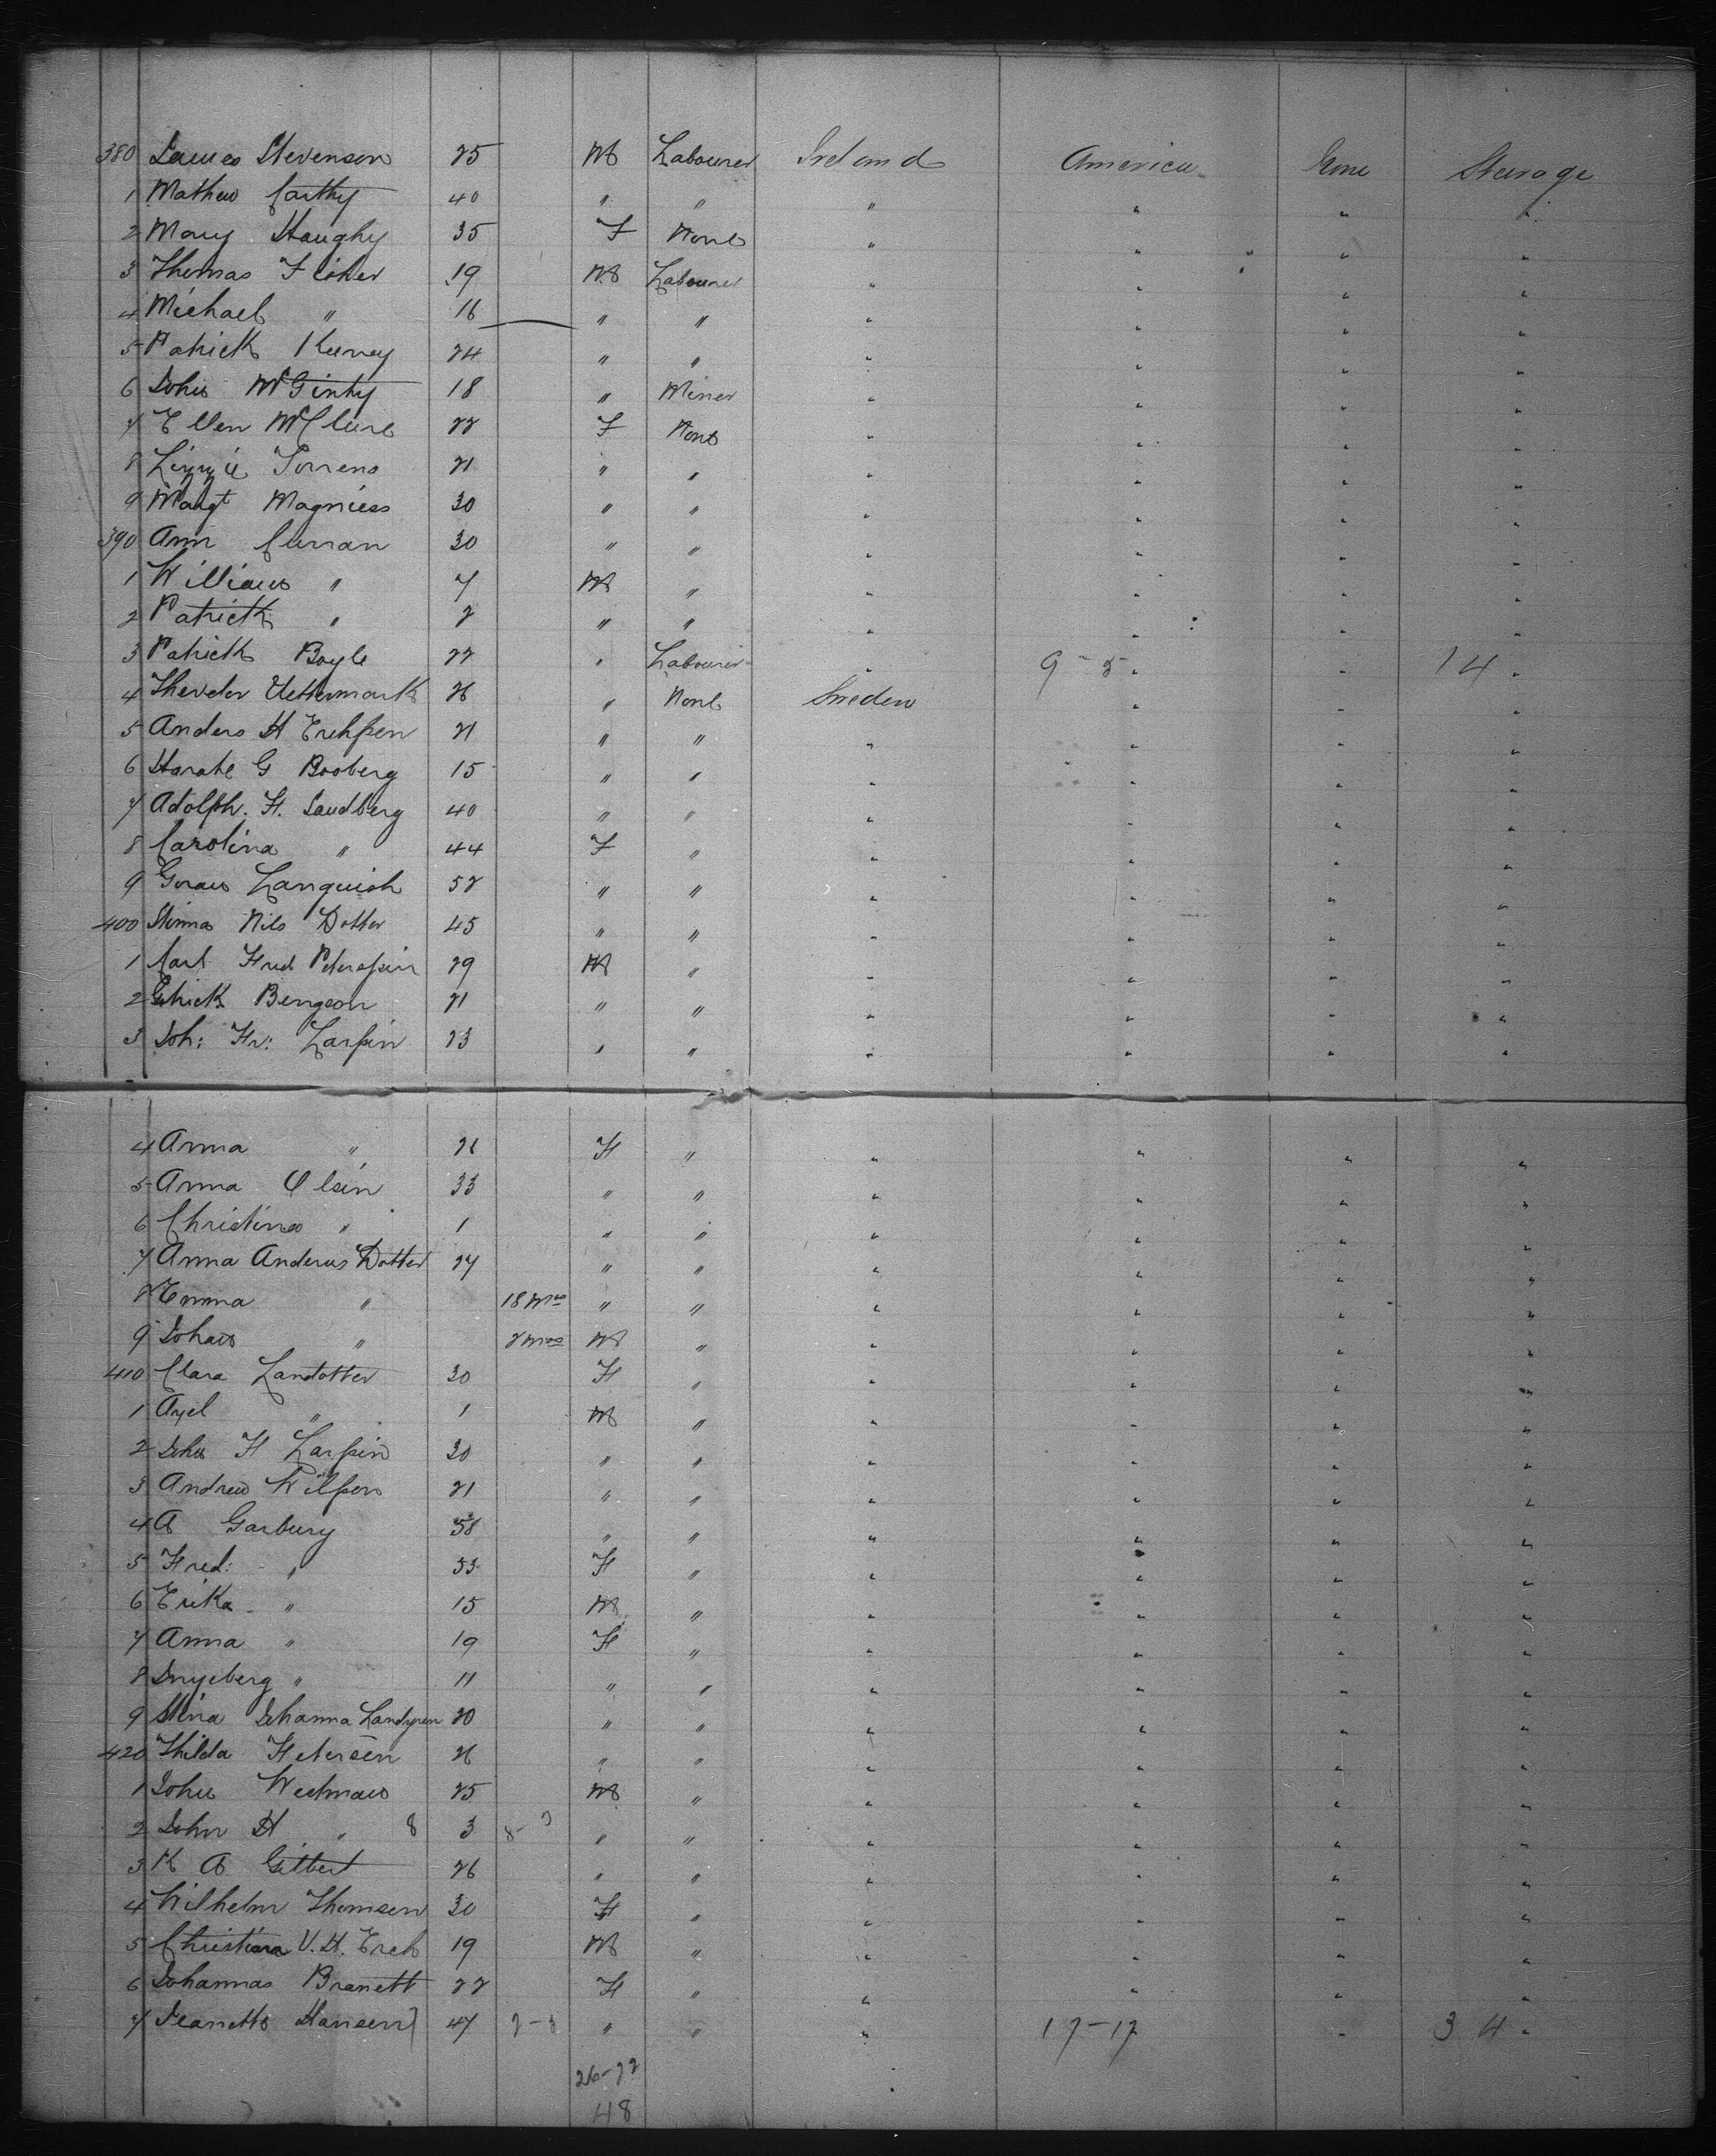 380 James Stevenson 25 M Labourer Ireland America None Steerage
1 Mathew Carthy 40 " " " " " "
2 Mary Haughy 35 F None " " " "
3 Thomas Fisher 19 M Labourer " " " "
4 Michael " 16 " " " " " "
5 Patrick Keeney 24 " " " " " "
6 John McGinty 18 " Miner " " " "
7 Ellen McClure 22 F None " " " "
8 Lizzie Torrens 21 " " " " " "
9 Margt Magniess 30 " " " " " "
390 Ann Curran 30 " " " " " "
1 William " 7 M " " " " "
2 Patrick " 2 " " " " " "
3 Patrick Boyle 22 " Labourer " 9-5 " " 14 "
4 Thevdor Uettermark 26 " None Sweden " " "
5 Anders H Erikssen 21 " " " " " "
6 G Booberg 15 " " " " " "
7 Adolph. F. Sandberg 40 " " " " " "
8 Carolina " 44 F " " " " "
9 Languish 52 " " " " " "
400 Stinna Nils Dotter 45 " " " " " "
1 Carl Fred Peterssin 29 M " " " " "
2 Bengson 21 " " " " " "
3 Joh: Fr: Larssin 23 " " " " " "
4 Anna " 26 F " " " " "
5 Anna Olsin 33 " " " " " "
6 Christina " 1 " " " " " "
7 Anna Anderus Dotter 27 " " " " " "
8 Emma " 18 Mos " " " " " "
9 Johan " 2 mos M " " " " "
410 Clara Landotter 30 F " " " " "
1 Axel " 1 M " " " " "
2 John F Larssin 30 " " " " " "
3 Andrew Wilsson 21 " " " " " "
4 A Garbury 58 " " " " " "
5 Fred: " 53 F " " " " "
6 Erika " 15 M " " " " "
7 Anna " 19 F " " " " "
8 Ingeberg " 11 " " " " " "
9 Stina Johanna Landgren 20 " " " " " "
420 Thilda Petersen 26 " " " " " "
1 John Westman 25 M " " " " "
2 John H " 8 3 8- " " " " " "
3 K A Gilbert 26 " " " " " "
4 Wilhelm Thomsen 30 F " " " " "
5 Christiana V. H. Erek 19 M " " " " "
6 Johannas Branett 22 F " " " " "
7 Jeanetta Hansen 47 " " " 17-17 " 34 "
26-22
48